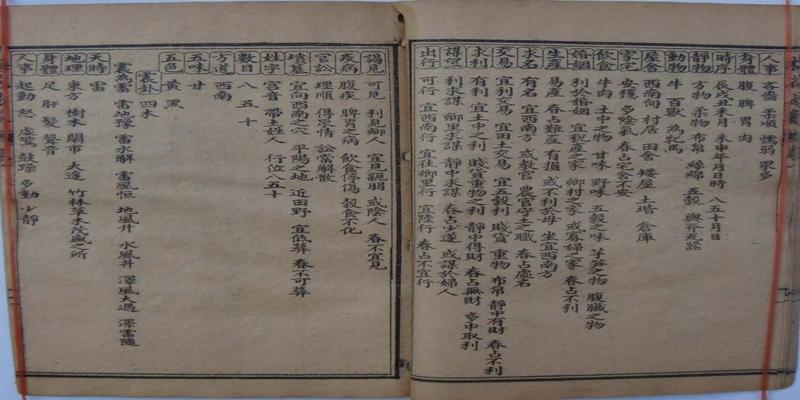 人事 吝嗇 柔順 懦弱 眾多
身體 腹 脾 胃 肉
時序 辰戌丑未月 未申年月日時 八五十月日
靜物 方物 柔物 布帛 絲綿 五穀 瓦器
動物 牛 百獸 為牝馬
屋舍 西南向 村居 田舍 矮屋 土堦 倉庫
家宅 安穩 多陰氣 春占宅舍不安
飲食 牛肉 土中之物 甘味 野味 五穀之味 芋笋之物 腹臟之物
婚姻 利於婚姻 宜稅產之家 鄉村之家 或寡婦之家 春占不利
生產 易產 春占難產 有損 或不利於母 坐宜西南方
求名 有名 宜西南方 或教官 農官守土之職 春占虛名
交易 宜利交易 宜田土交易 宜五穀利 賤貨 重物 布帛 靜中有財 春占不利
求利 有利 宜土中之利 賤貨重物之利 靜中得財 春占無財 多中取利
謀望 利求謀 鄉里求謀 靜中求謀 春占少遂 或謀於婦人
出行 可行 宜西南行 宜往鄉里行 宜陸行 春占不宜行
謁見 可見 利見鄉人 宜見親朋 或陰人 春不宜見
疾病 腹疾 脾胃之病 飲食停傷 穀食不化
官訟 理順 得眾情 訟當解散
墳墓 宜向西南之穴 平陽之地 近田野 宜低葬 春不可葬
姓字 宮音 帶土姓人 行位八五十
數目 八 五 十
方道 西南
五味 甘
五色 黃 黑
震卦 四木
震為雷 雷地豫 雷水解 雷風恒 地風升 水風井 澤風大過 澤雷隨
天時 雷
地理 東方 樹木 鬧市 大途 竹林 草木茂盛之所
身體 足 肝 髮 聲音
人事 起動 怒 虛驚 鼓躁 多動少靜